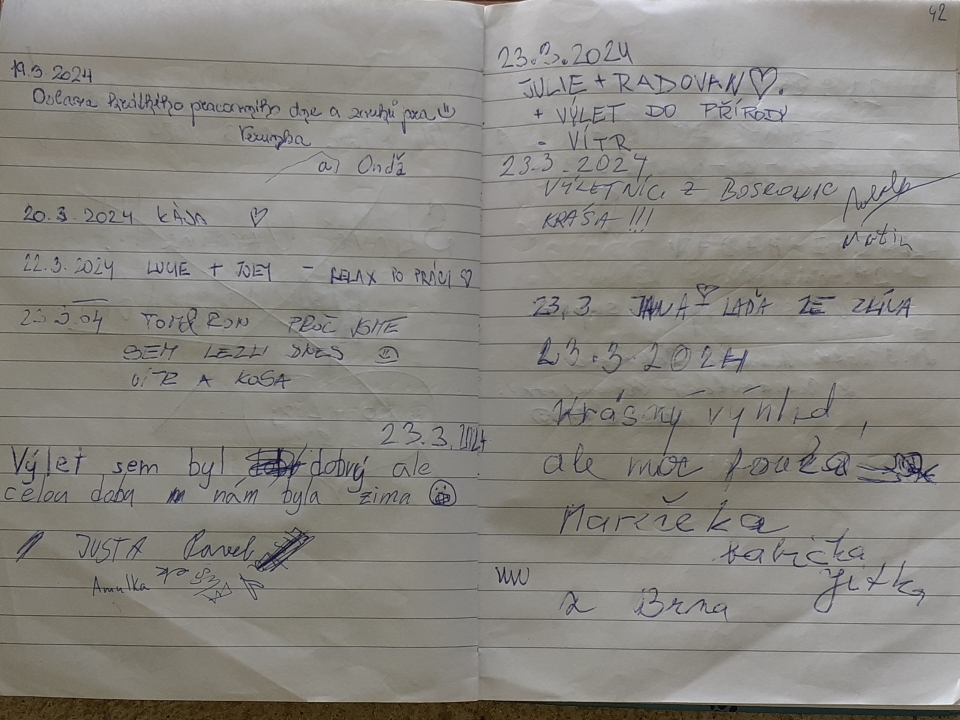 19.3.2024
Oslava krátkého pracovního dne a
Verunka
a Onďa
20.3.2024 KÁJA ♡
22.3.2024 LUCIE + JOEY - RELAX PO PRÁCI ♡
TOM & RON PROČ JSME
SEM LEZLI DNES
VÍTR A KOSA
23.3.2024
Výlet sem byl dobrý ale
celou dobu nám byla zima
JUSTA Pavel
Amulka
42
23.3.2024
JULIE + RADOVAN ♡.
+ VÝLET DO PŘÍRODY
- VÍTR
23.3.2024
VÝLETNÍCI Z BOSKOVIC
KRÁSA !!!
Matin
23.3. JANA + LAĎA ZE ZLÍVA
23.3.2024
Krásný výhled,
ale moc fouká
Mařenka
babička
Jitka
z Brna